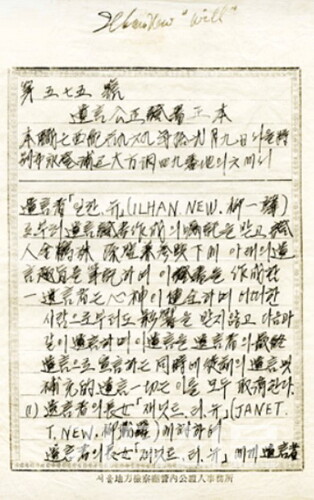 Ilhan New "Will"
第五七五號
遺言公正證書正本
本職은 西紀一九六九年 月 日 서울特別市永登浦區大方洞 四九番地의
遺言者「일한.유」(ILHAN.NEW.柳一韓)
으로부터 遺言證書作成의 囑託을 받고 證
人 參與下에 아래의 遺
言趣旨를 筆記하여 이 證書를 作成함
一 遺言者는 心神이 健全하며 어떠한
사람으로부터도 影響을 받지않고 다음과
같이 遺言하며 이 遺言을 遺言者의 最終
遺言으로 宣言하는 同時에 從前의 遺言 및
補充的 遺言 一切는 이를 모두 取消한다.
(1) 遺言者의 長女「재닛트.티.유」(JANET.
T.NEW. )에 對하여
遺言者의 長女「재닛트.티.유」에게 遺言者
서울地方檢察廳管內公證人事務所